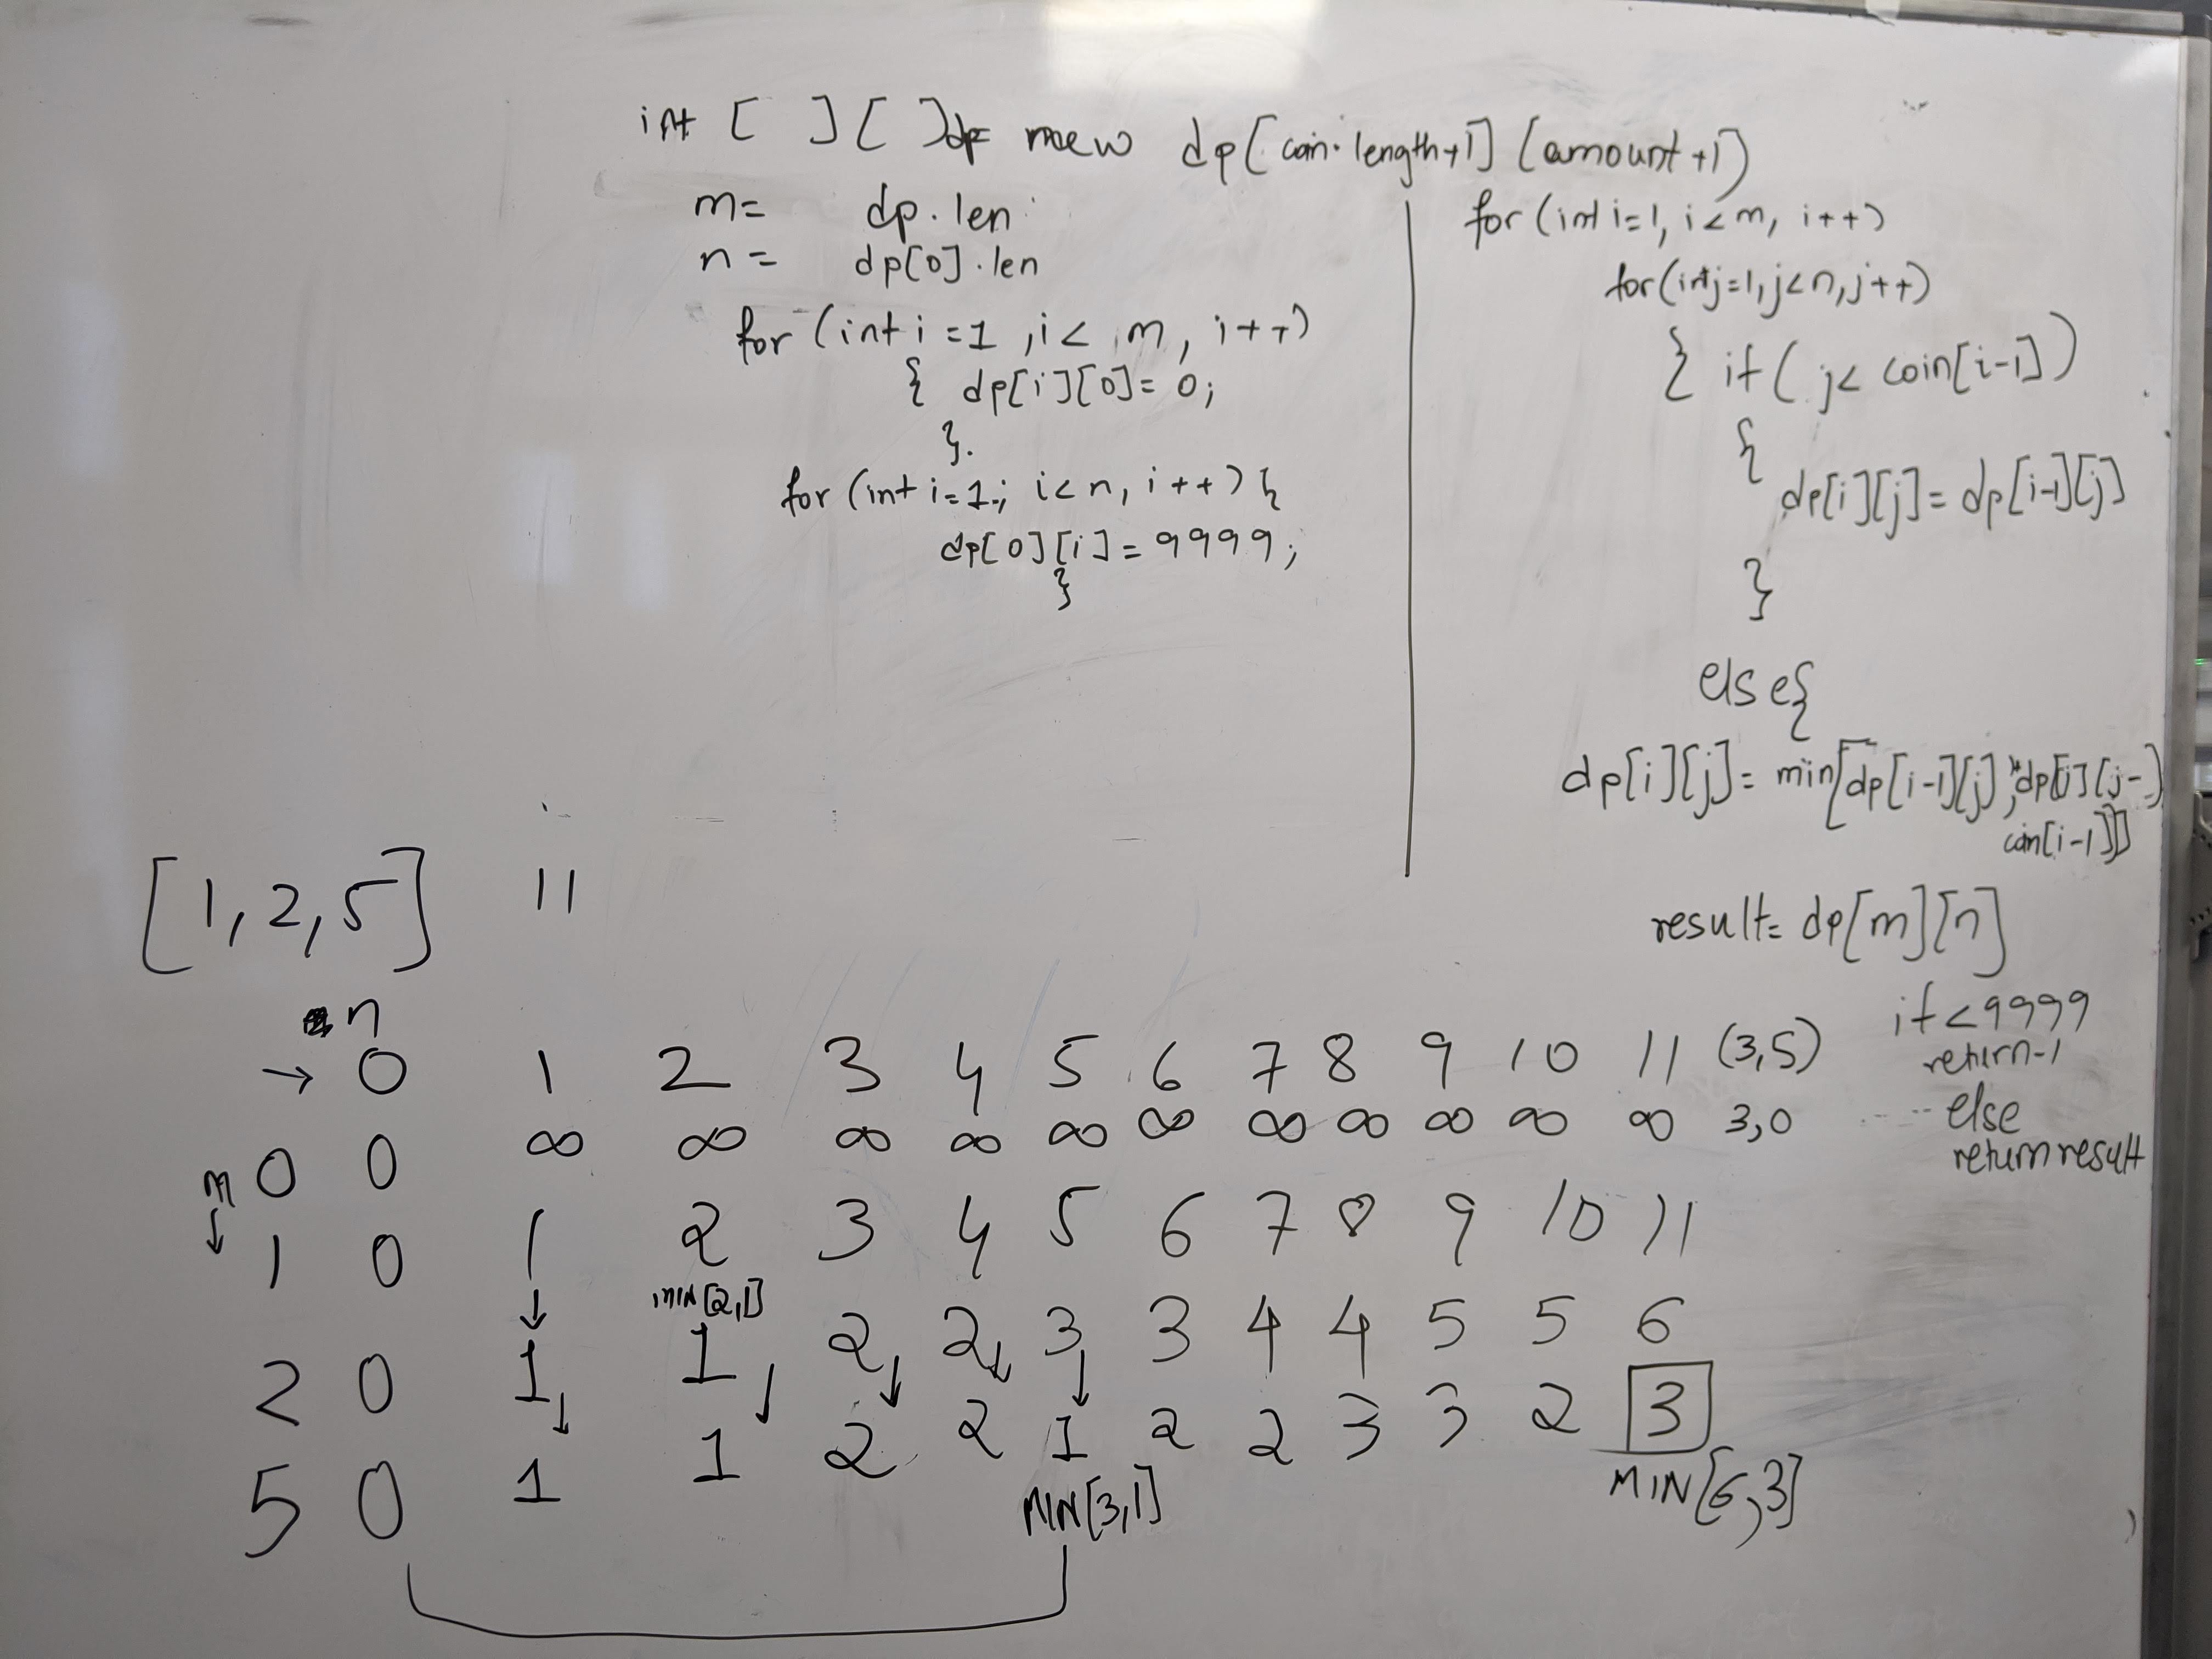 int [ ] [ ]dp= new dp[coin.length+1] [amount+1]
m= dp.len
n= dp[0].len
for (int i=1 ,i< m, i++)
{ dp[i][0]= 0;
}.
for (int i=1; i<n, i++) {
dp[0][i]=9999;
}
for (int i=1, i<m, i++)
for(int j=1,j<n,j++)
{ if( j< coin[i-1])
{
dp[i][j]= dp[i-1][j]
}
else{
dp[i][j]= min[dp[i-1][j], dp[i][j-
coin[i-1]]]
result= dp[m][n]
if <9999
return-1
else
return result
[1,2,5] 11
n
→ 0 1 2 3 4 5 6 7 8 9 10 11 (3,5)
0 0 ∞ ∞ ∞ ∞ ∞ ∞ ∞ ∞ ∞ ∞ ∞ 3,0
m
↓
1 0 1 2 3 4 5 6 7 8 9 10 11
min[2,1]
2 0 1 1 2 2 3 3 4 4 5 5 6
5 0 1 1 2 2 1 2 2 3 3 2 3
MIN[3,1] MIN[6,3]